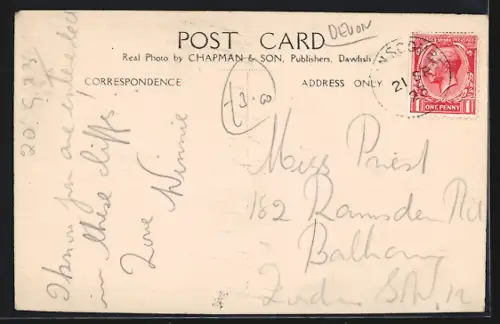 DEVON
POST CARD
Real Photo by CHAPMAN & SON, Publishers, Dawlish
CORRESPONDENCE
ADDRESS ONLY
20.9.23
I know you are interested
in these cliffs
Love Winnie
Miss Priest
182 Ramsden Rd
Balham
London S.W. 12
21 SP
ONE PENNY